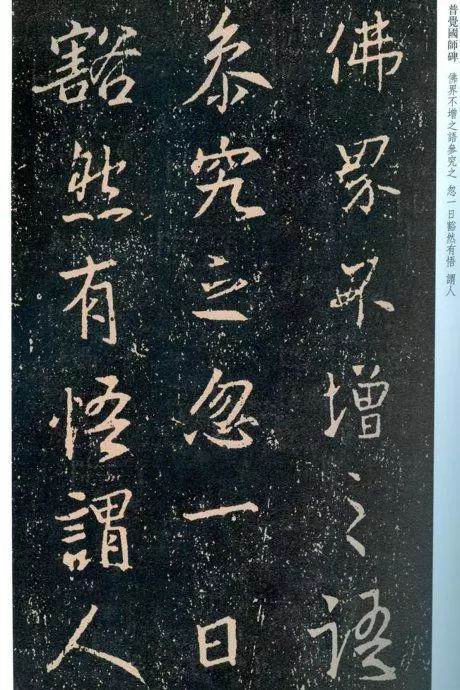 普覺國師碑 佛界不增之語參究之 忽一日豁然有悟 謂人
佛界不增之語
叅究之忽一日
豁然有悟謂人